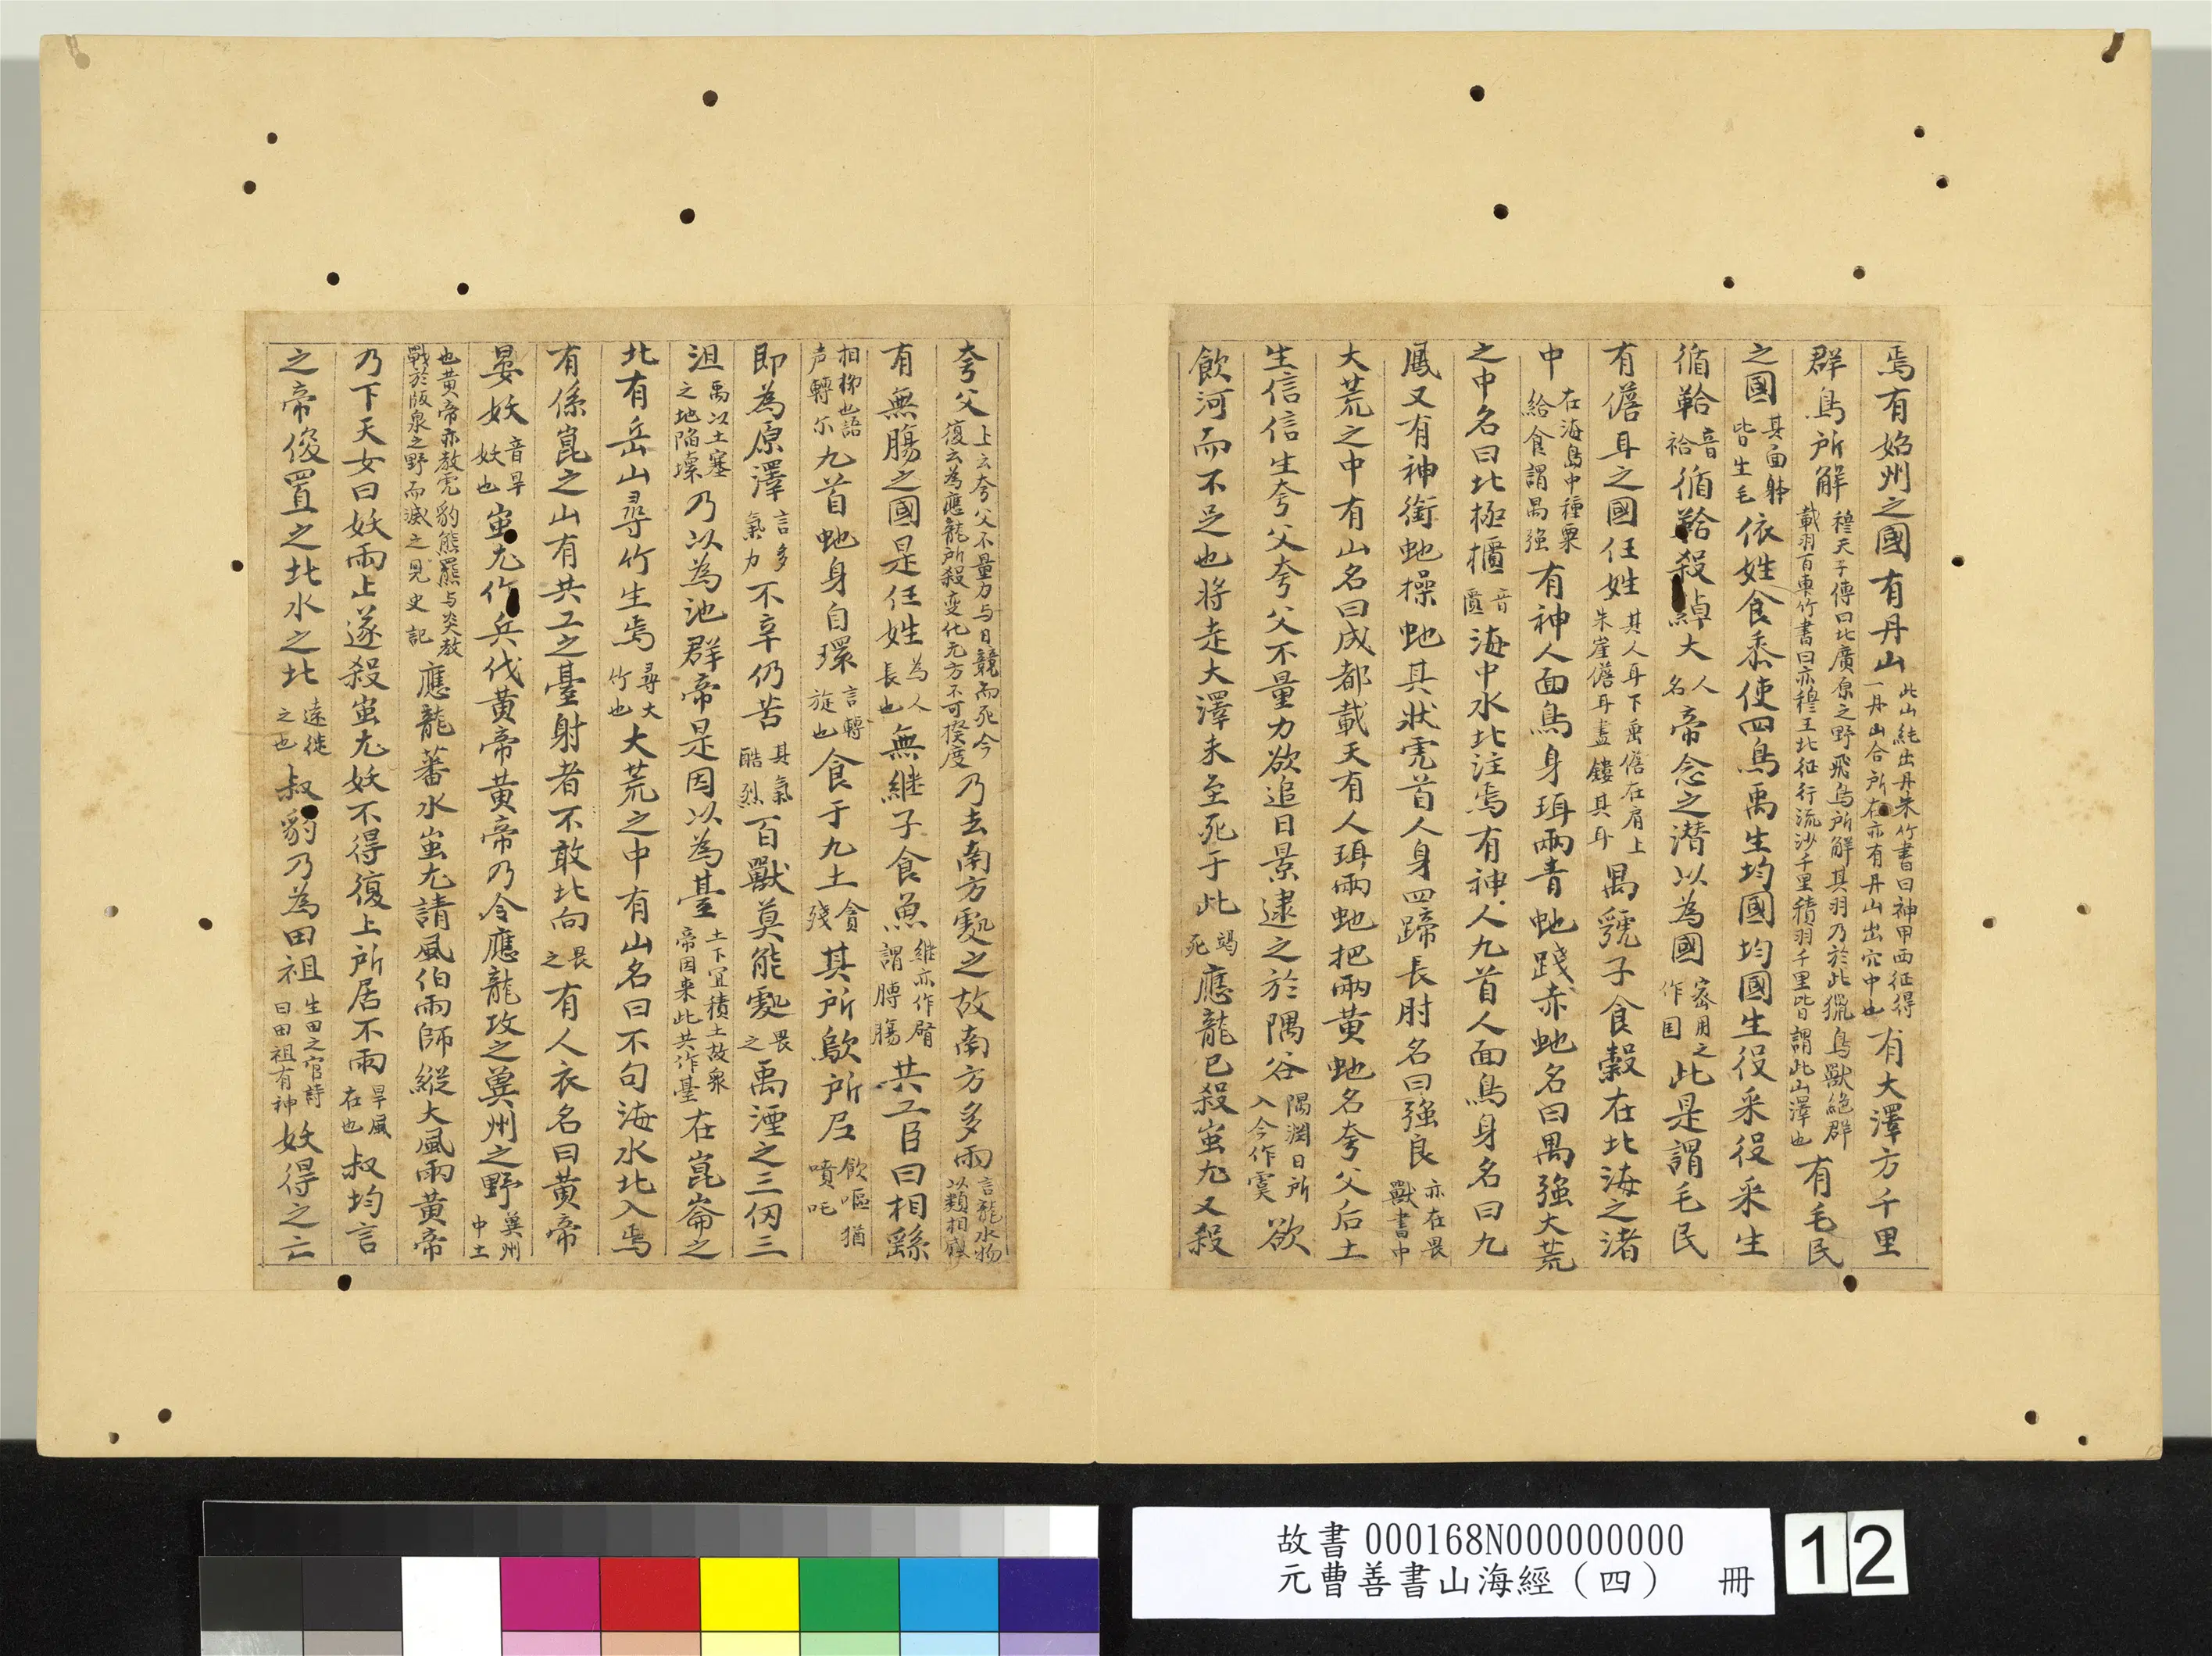 焉有始州之國有丹山此山純出丹朱竹書曰神甲西征得一丹山合所在亦有丹山出穴中也有大澤方千里
群鳥所解穆天子傳曰北廣原之野飛鳥所解其羽乃於此獵鳥獸絕群載羽百車竹書曰亦穆王北征行流沙千里積羽千里皆謂此山澤也有毛民
之國其面躰皆生毛依姓食黍使四鳥禹生均國均國生役采役采生
循鞈音袷循鞈殺綽大人名帝念之潜以為國密用之作国此是謂毛民
有儋耳之國任姓其人耳下垂儋在肩上朱崖儋耳盡鏤其耳禺號子食穀在北海之渚
中在海島中種粟給食謂禺強有神人面鳥身珥兩青虵踐赤虵名曰禺強大荒
之中名曰北極櫃音匱海中水北注焉有神人九首人面鳥身名曰九
鳳又有神銜虵操虵其狀虎首人身四蹄長肘名曰強良亦在畏獸書中
大荒之中有山名曰成都載天有人珥兩虵把兩黄虵名夸父后土
生信信生夸父夸父不量力欲追日景逮之於隅谷隅淵日所入今作虞欲
飲河而不足也将走大澤未至死于此渴死應龍已殺蚩尤又殺
夸父上云夸父不量力与日競而死今復云為應龍所殺变化无方不可揆度乃去南方處之故南方多雨言龍水物以類相應
有無腸之國是任姓為人長也無継子食魚継亦作䏿謂膊腸共工臣曰相繇
相栁也語声轉尔九首虵身自環言轉旋也食于九土貪殘其所歍所尼歍嘔猶噴吒
即為原澤言多氣力不辛仍苦其氣酷烈百獸莫能處畏之禹湮之三仞三
沮禹以土塞之地陷壞乃以為池群帝是因以為臺土下冝積土故衆帝因来此共作臺在崑崙之
北有岳山尋竹生焉尋大竹也大荒之中有山名曰不句海水北入焉
有係崑之山有共工之臺射者不敢北向畏之有人衣名曰黄帝
晏妖音旱妖也蚩尤作兵伐黄帝黄帝乃令應龍攻之冀州之野冀州中土
也黄帝亦教虎豹熊羆与炎教戰於阪泉之野而滅之見史記應龍蓄水蚩尤請風伯雨師縱大風雨黄帝
乃下天女曰妖雨止遂殺蚩尤妖不得復上所居不雨旱風在也叔均言
之帝俊置之北水之北遠徙之也叔豹乃為田祖生田之官詩曰田祖有神妖得之亡
故書 000168N000000000
元曹善書山海經（四） 冊
12